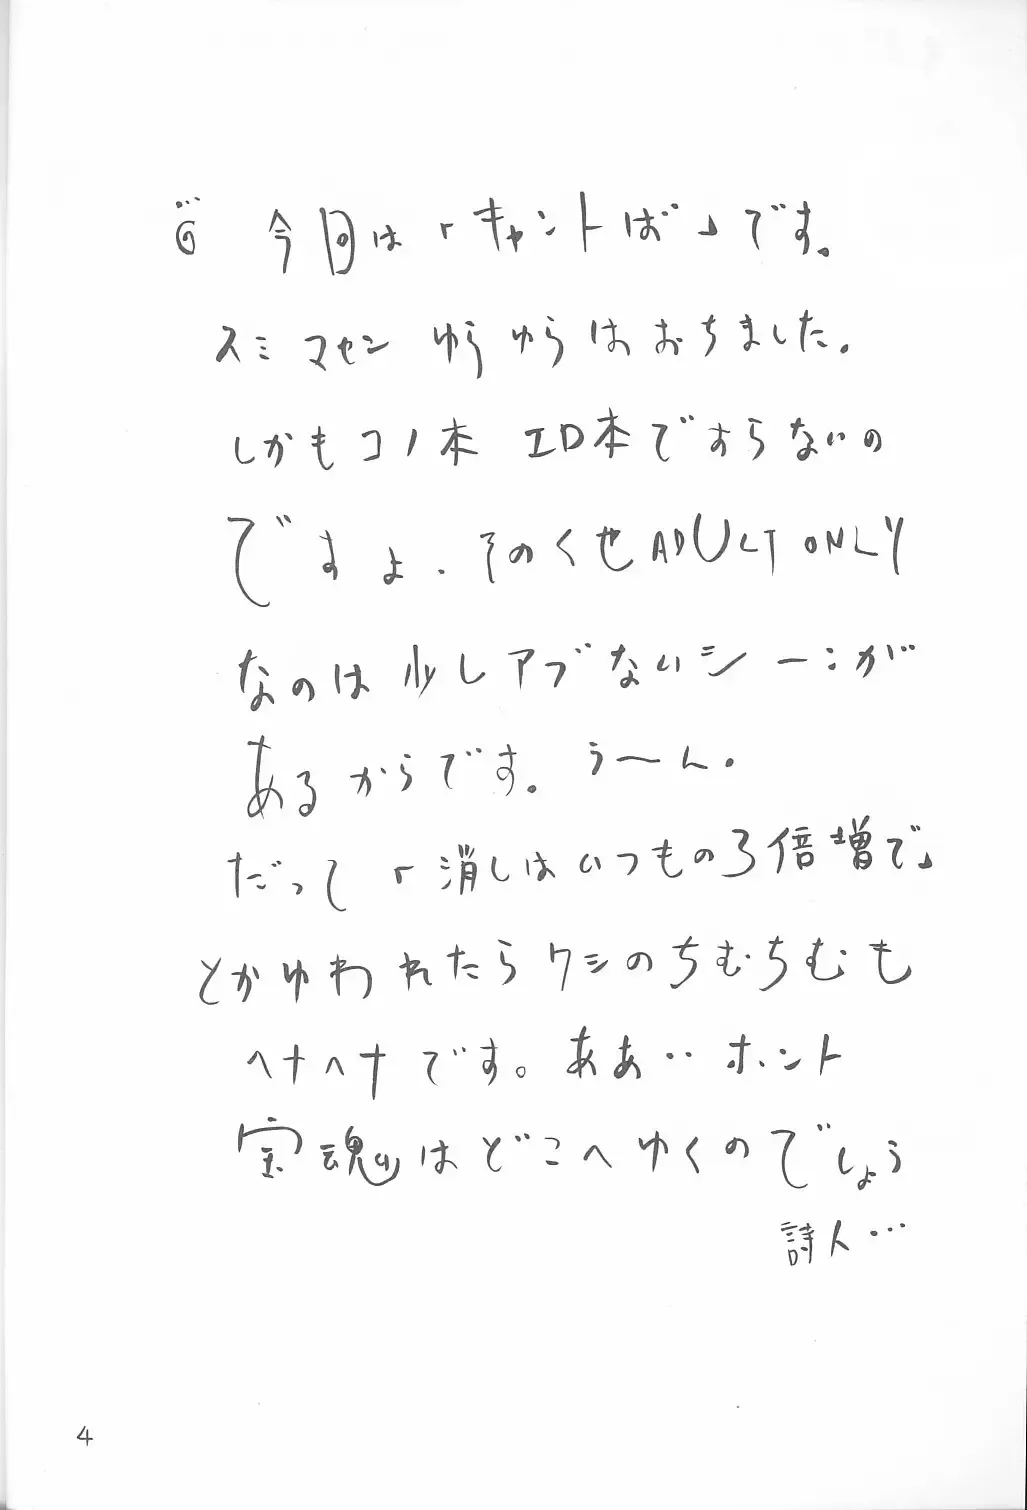 今回は「キャントば」です。
スミマセン ゆうゆらはおちました。
しかもコノ本 エロ本ですらないの
ですよ. そのくせADULT ONLY
なのは少しアブないシーンが
あるからです。うーん.
だって「消しはいつもの3倍増で」
とかゆわれたらワシのちむちむも
ヘナヘナです。ああ‥ホント
宝魂はどこへゆくのでしょう
詩人…
4